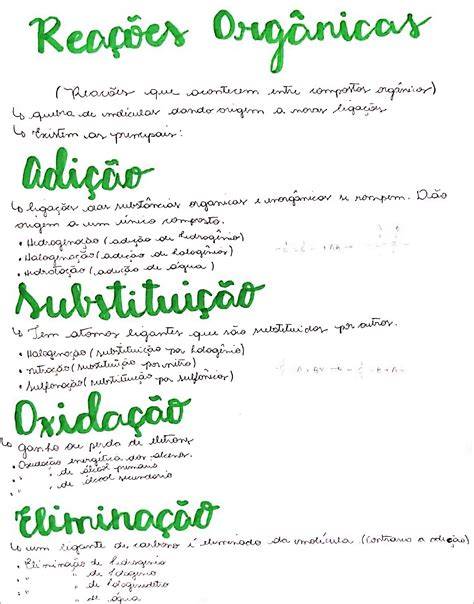 Reações Orgânicas
(Reações que acontecem entre compostos orgânicos)
↳ quebra de moléculas dando origem a novas ligações
↳ Existem as principais:
Adição
↳ ligações das substâncias orgânicas e inorgânicas se rompem. Dão
origem a um único composto.
• Hidrogenação (adição de hidrogênio)
• Halogenação (adição de halogênios)
• Hidratação (adição de água)
Substituição
↳ Tem átomos ligantes que são substituídos por outros.
• Halogenação (substituição por halogênio)
• nitração (substituição por nitro)
• Sulfonação (substituição por sulfônicos)
Oxidação
↳ ganho ou perda de elétrons
• Oxidação energética dos alcenos.
• " " de álcool primário
• " " de álcool secundário
Eliminação
↳ um ligante de carbono é eliminado da molécula (contrário a adição)
• Eliminação de hidrogênio
• " " de halogênio
• " " de
• " " de água